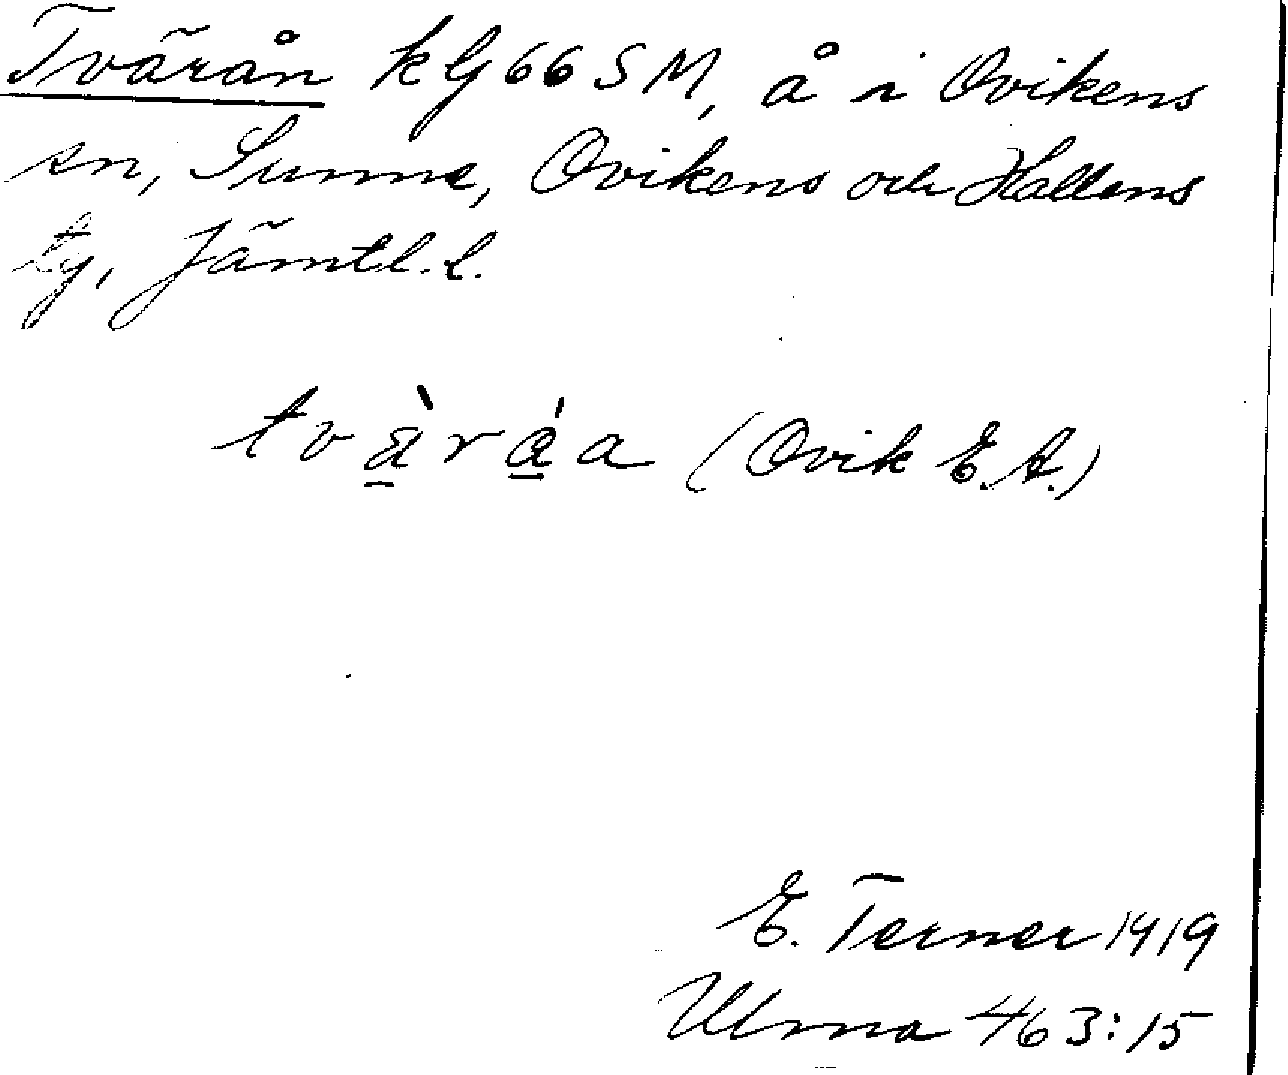 Tvärån kG66SM, å i Ovikens
sn, Sunne, Ovikens och Hallens
tg, Jämtl. l.
tvä̀rá̱a (Ovik E.A.)
E. Terner 1919
Ulma 463:15